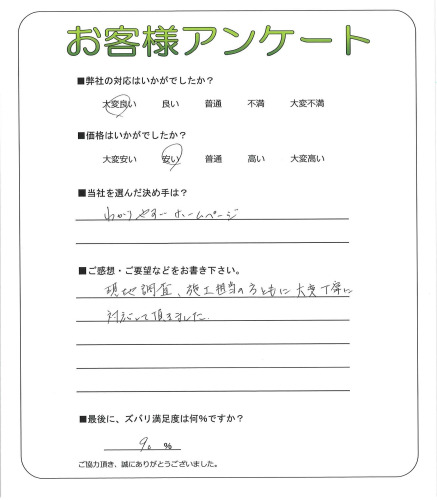 お客様アンケート
■弊社の対応はいかがでしたか?
大変良い 良い 普通 不満 大変不満
■価格はいかがでしたか?
大変安い 安い 普通 高い 大変高い
■当社を選んだ決め手は?
わかりやすいホームページ
■ご感想・ご要望などをお書き下さい。
現地調査、施工担当の方ともに大変丁寧に
対応して頂きました。
■最後に、ズバリ満足度は何%ですか?
90 %
ご協力頂き、誠にありがとうございました。